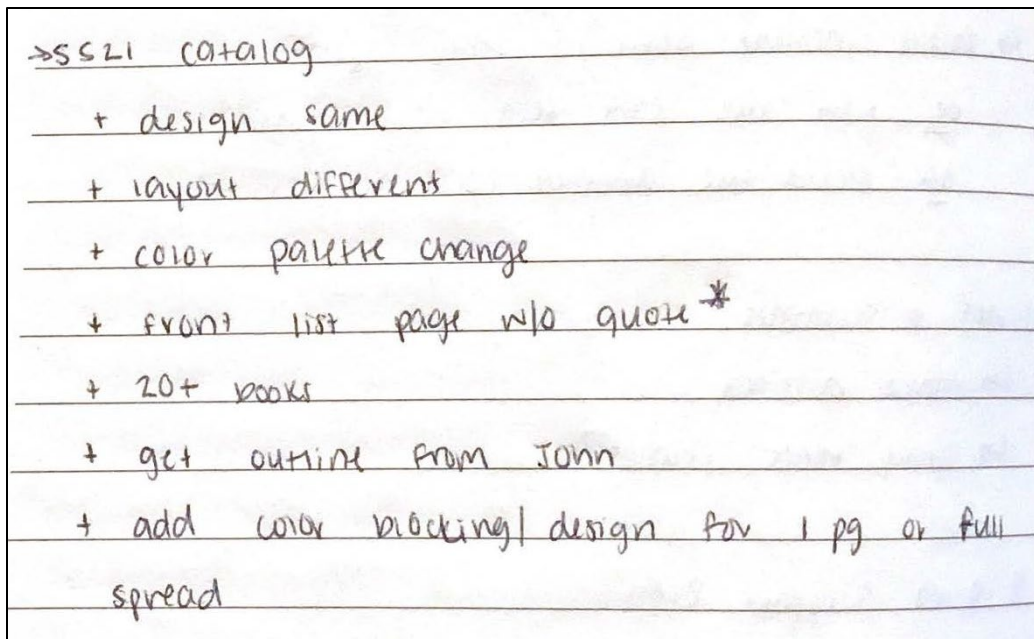 →SS21 catalog
+ design same
+ layout different
+ color palette change
+ front list page w/o quote *
+ 20+ books
+ get outline from John
+ add color blocking/design for 1 pg or full
spread